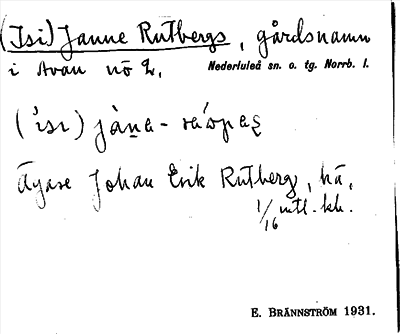 (Isi) Janne Rutbergs, gårdsnamn
i Avan nö 2, Nederluleå sn. o. tg. Norrb. l.
Ägare Johan Erik Rutberg, hä,
1/16 mtl. kh.
E. BRÄNNSTRÖM 1931.